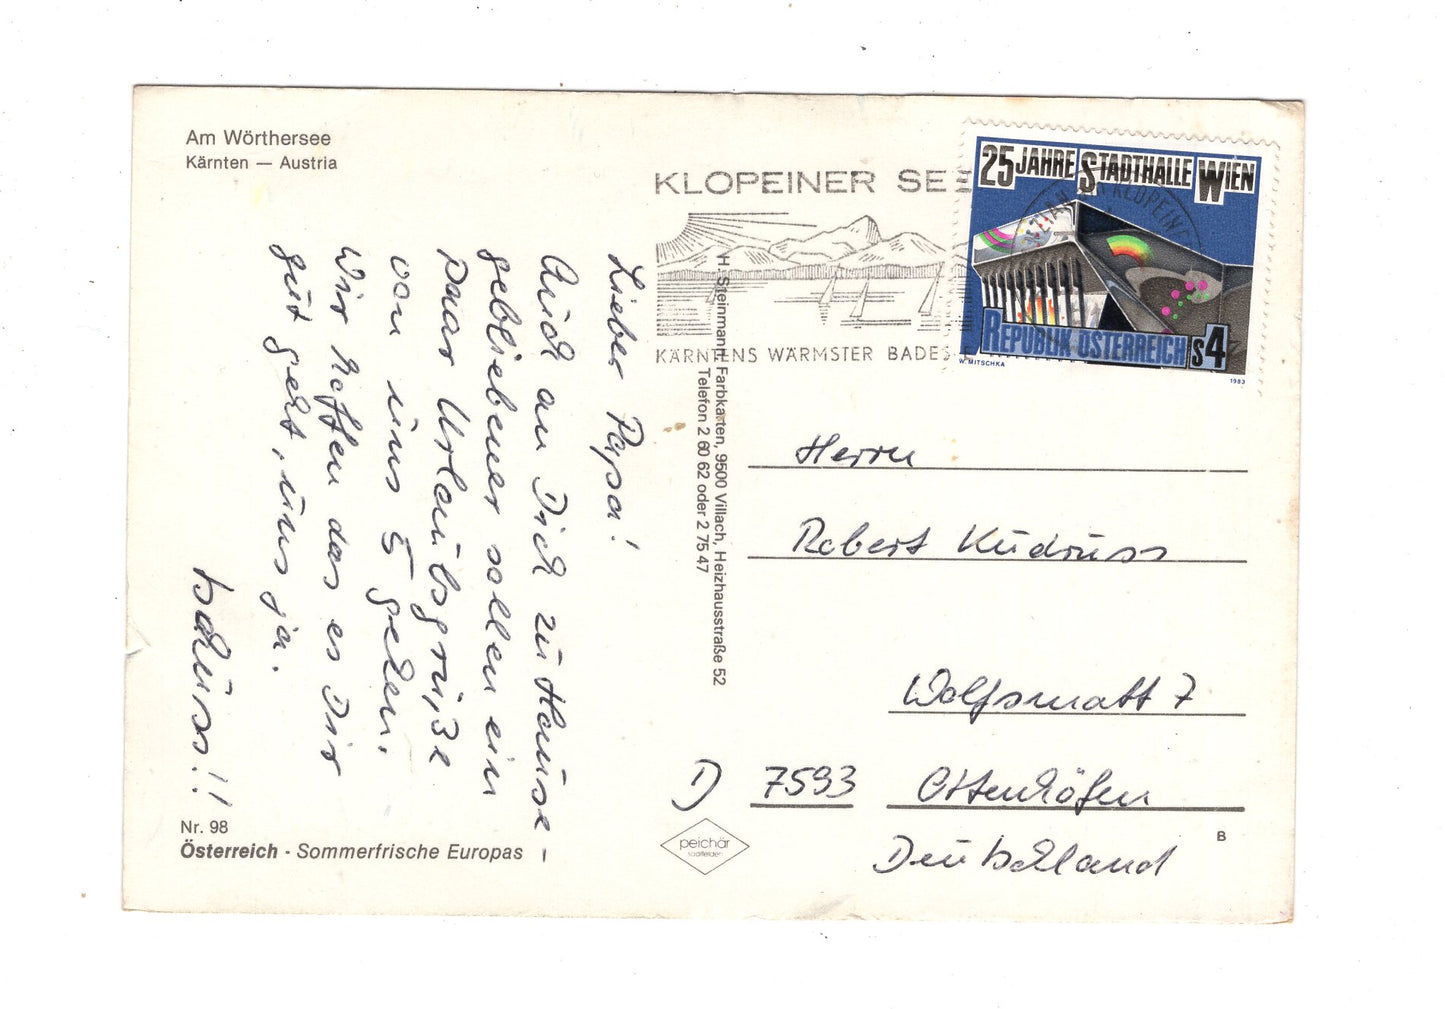 Am Wörthersee
Kärnten — Austria
KLOPEINER SEE
KÄRNTENS WÄRMSTER BADESEE
25 JAHRE STADTHALLE WIEN
REPUBLIK ÖSTERREICH S 4
W. MITSCHKA
1983
KLOPEIN
Lieber Papa!
Auch an Dich zu Hause -
gebliebener sollen ein
paar Urlaubsgrüße
von uns 5 gehen.
Wir hoffen das es Dir
gut geht, uns ja.
tschüss!!
H. Steinmann, Farbkarten, 9500 Villach, Heizhausstraße 52
Telefon 2 60 62 oder 2 75 47
Herrn
Robert Kudruss
Wolfsmatt 7
D 7593 Ottenhöfen
Deutschland
Nr. 98
Österreich - Sommerfrische Europas
peichär
saalfelden
B